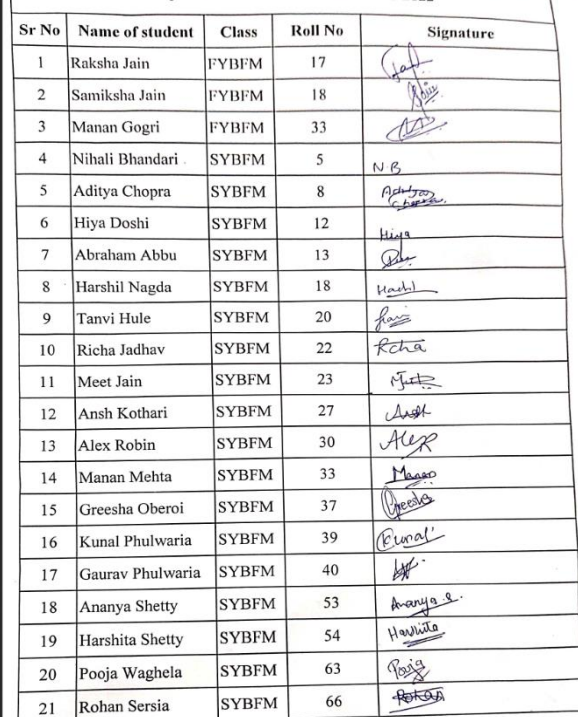 Sr No Name of student Class Roll No Signature
1 Raksha Jain FYBFM 17
2 Samiksha Jain FYBFM 18
3 Manan Gogri FYBFM 33
4 Nihali Bhandari SYBFM 5 N.B
5 Aditya Chopra SYBFM 8
6 Hiya Doshi SYBFM 12 Hiya
7 Abraham Abbu SYBFM 13
8 Harshil Nagda SYBFM 18
9 Tanvi Hule SYBFM 20
10 Richa Jadhav SYBFM 22
11 Meet Jain SYBFM 23
12 Ansh Kothari SYBFM 27 Ansh
13 Alex Robin SYBFM 30 Alex
14 Manan Mehta SYBFM 33 Manan
15 Greesha Oberoi SYBFM 37 Greesha
16 Kunal Phulwaria SYBFM 39 Kunal
17 Gaurav Phulwaria SYBFM 40
18 Ananya Shetty SYBFM 53 Ananya.S.
19 Harshita Shetty SYBFM 54 Harshita
20 Pooja Waghela SYBFM 63 Pooja
21 Rohan Sersia SYBFM 66 Rohan